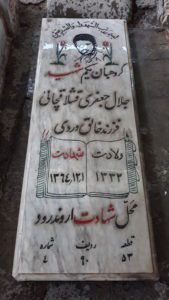 گروهبان یکم شهید
جلال جعفری قشلاقچائی
فرزند خالق وردی
ولادت شهادت
۱۳۴۳ ۱۳۶۴,۱۲,۱
محل شهادت اروندرود
قطعه ردیف شماره
۵۳ ۹۰ ۴